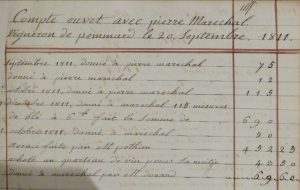 Compte ouvet avec pierre Marechal
Vigneron de pommard, le 20 Septembre. 1811.
Septembre 1811, donné a pierre marechal 75
donné a pierre 12
octobre 1811, donné a pierre marechal 115
1811, donné a marechal 115 mesures
de blé a 6 fait la somme de 690
octobre 1811, donné a marechal 20
faite par Mr pothier 45225
un de vin pour sa 4550
donné a marechal par Mr durand